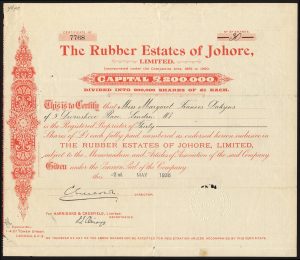 CERTIFICATE No.
7768
No. OF SHARES
The Rubber Estates of Johore,
LIMITED.
Incorporated under the Companies Acts, 1862 to 1900.
CAPITAL £200,000.
DIVIDED INTO 200,000 SHARES OF £1 EACH.
This is to Certify that Miss Margaret Frances
of 3 Devonshire Place London W1
is the Registered Proprietor of
Shares of £1 each fully paid, numbered as endorsed hereon inclusive in
THE RUBBER ESTATES OF JOHORE, LIMITED,
subject to the Memorandum and Articles of Association of the said Company.
Given under the Common Seal of the Company
this MAY
DIRECTOR.
FOR HARRISONS & CROSFIELD, LIMITED
SECRETARIES
TOWER STREET
LONDON, E.C.3
NO TRANSFER OF ANY OF THE ABOVE SHARES CAN BE ACCEPTED FOR REGISTRATION UNLESS ACCOMPANIED BY THIS CERTIFICATE.